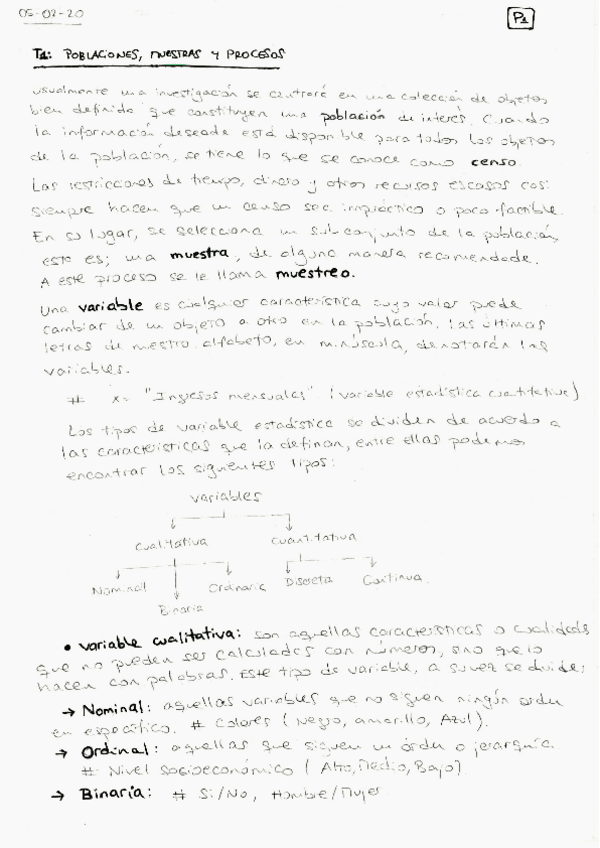 05-02-20
P1
T1: POBLACIONES, MUESTRAS Y PROCESOS
usualmente una investigación se centrará en una colección de objetos
bien definida que constituyen una población de interés. Cuando
la información deseada está disponible para todos los objetos
de la población, se tiene lo que se conoce como censo.
Las restricciones de tiempo, dinero y otros recursos escasos casi
siempre hacen que un censo sea impráctico o poco factible.
En su lugar, se selecciona un subconjunto de la población,
esto es; una muestra, de alguna manera recomendada.
A este proceso se le llama muestreo.
Una variable es cualquier característica cuyo valor puede
cambiar de un objeto a otro en la población, las últimas
letras de nuestro alfabeto, en minúscula, denotarán las
variables.
# x= "Ingresos mensuales" (variable estadística cuantitativa)
Los tipos de variable estadística se dividen de acuerdo a
las características que la definan, entre ellas podemos
encontrar los siguientes tipos:
variables
Cualitativa Cuantitativa
Nominal Ordinaria Discreta Continua.
Binaria
• variable cualitativa: son aquellas características o cualidades
que no pueden ser calculadas con números, sino que lo
hacen con palabras. Este tipo de variable, a su vez se divide;
→ Nominal: aquellas variables que no siguen ningún orden
en específico. # Colores (Negro, amarillo, Azul).
→ Ordinal: aquellas que siguen un orden o jerarquía.
# Nivel Socioeconómico (Alto, Medio, Bajo)
→ Binaria: # Si/No, Hombre/Mujer